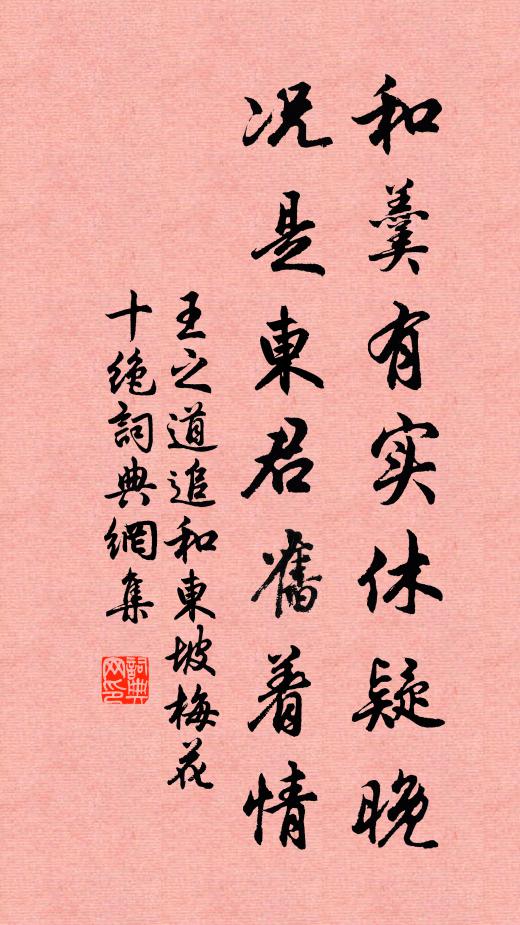 和羹有实休疑晚
况是東君舊着情
王之道追和東坡梅花
十絶詞典網集
詞典
网印